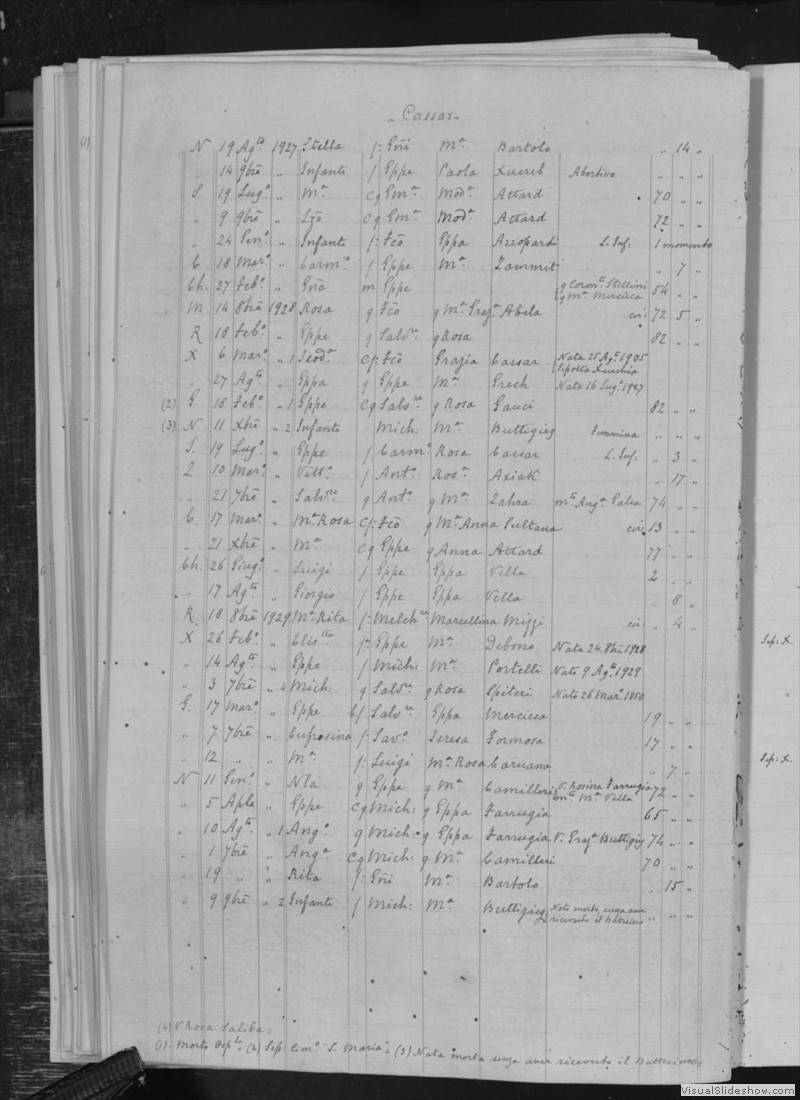 Cassar
N 19 Agto 1927 Stella f: Gñi Ma Bartolo " 14 "
" 14 9bre " Infante f Eppe Paola Xuereb Abortivo " " "
S. 19 Lugo " Ma Cg Gma Moda Attard 70 " "
" 9 9bre " Lzo Cg Gma Moda Attard 72 " "
" 24 Geno " Infante f: Fco Eppa Azzopardi L. Inf. 1 momento
C 18 Maro " Carmo f Eppe Ma Zammit " 7 "
Ch. 27 Febo " m Eppe g Corona Stellini 54 " "
g Ma Mercieca
M 14 8bre 1928 Rosa g Fco g Ma Graza Abela civ: 72 5 "
R 18 Febo " Eppe g Salvre g Rosa 82 " "
X 6 Maro " 1 Teoda Cf: Fco Grazia Cassar Nata 25 Ago 1905
Sepolta Xuechia
" 27 Agto " Eppa g Eppe Ma Grech Nata 16 Lugo 1927
(2) G. 18 Febo " 1 Eppe Cg Salvre g Rosa Gauci 82 " "
(3) N 11 Xbre " 2 Infante Mich: Ma Buttigieg Femmina " " "
S. 19 Lugo " Eppe f Carmo Rosa Cassar L. Inf. " 3 "
Z 10 Maro " Vitto f Anto Rosa Axiak " 17 "
" 21 7bre " Salvre g Anto g Ma Zahra mto Anga Galea 74 " "
C 17 Maro " Ma Rosa Cf: Fco g Ma Anna Sultana civ: 13 " "
" 21 Xbre " Ma Cg Eppe g Anna Attard 77 " "
Ch. 26 Giugo " Luigi f Eppe Eppa Vella 2 " "
" 17 Agto " Giorgio f Eppe Eppa Vella " 8 "
R 18 8bre 1929 Ma Rita f: Melchre Marcellina Mizzi civ: " 4 "
X 26 Febo " Elistta f: Eppe Ma Debono Nata 24. 8bre 1928 Sep: X.
" 14 Agto " Eppe f Mich: Ma Portelli Nato 9 Ago 1929
" 3 7bre " 4 Mich: g Salvre g Rosa Spiteri Nato 26 Maro 1850
G. 17 Maro " Eppe Salvre Eppa Mercieca 19 " "
" 7 7bre " Eufrosina f: Savo Teresa Formosa 17 " "
" 12 " " Ma f: Luigi Ma Rosa Caruana " 7 " Sep: X.
N 11 Geno " Nla g Eppe g Ma Camilleri V. Rosina Farrugia 72 " "
mta Ma Vella
" 5 Aple " Eppe Cg Mich: g Eppa Farrugia 65 " "
" 10 Agto " 1 Ango g Mich: g Eppa Farrugia V: Graza Buttigieg 74 " "
" 1 7bre " Anga Cg Mich: g Ma Camilleri 70 " "
" 19 " " Rita f: Gñi Ma Bartolo " 15 "
" 9 9bre " 2 Infante f Mich: Ma Buttigieg Nato morto senza aver " " "
ricevuto il Battesimo
(4) V. Rosa Saliba =
(1) Morto Osple = (2) Sep. Cimo S. Maria = (3) Nata morta senza aver ricevuto il Battesimo =
VisualSlideshow.com